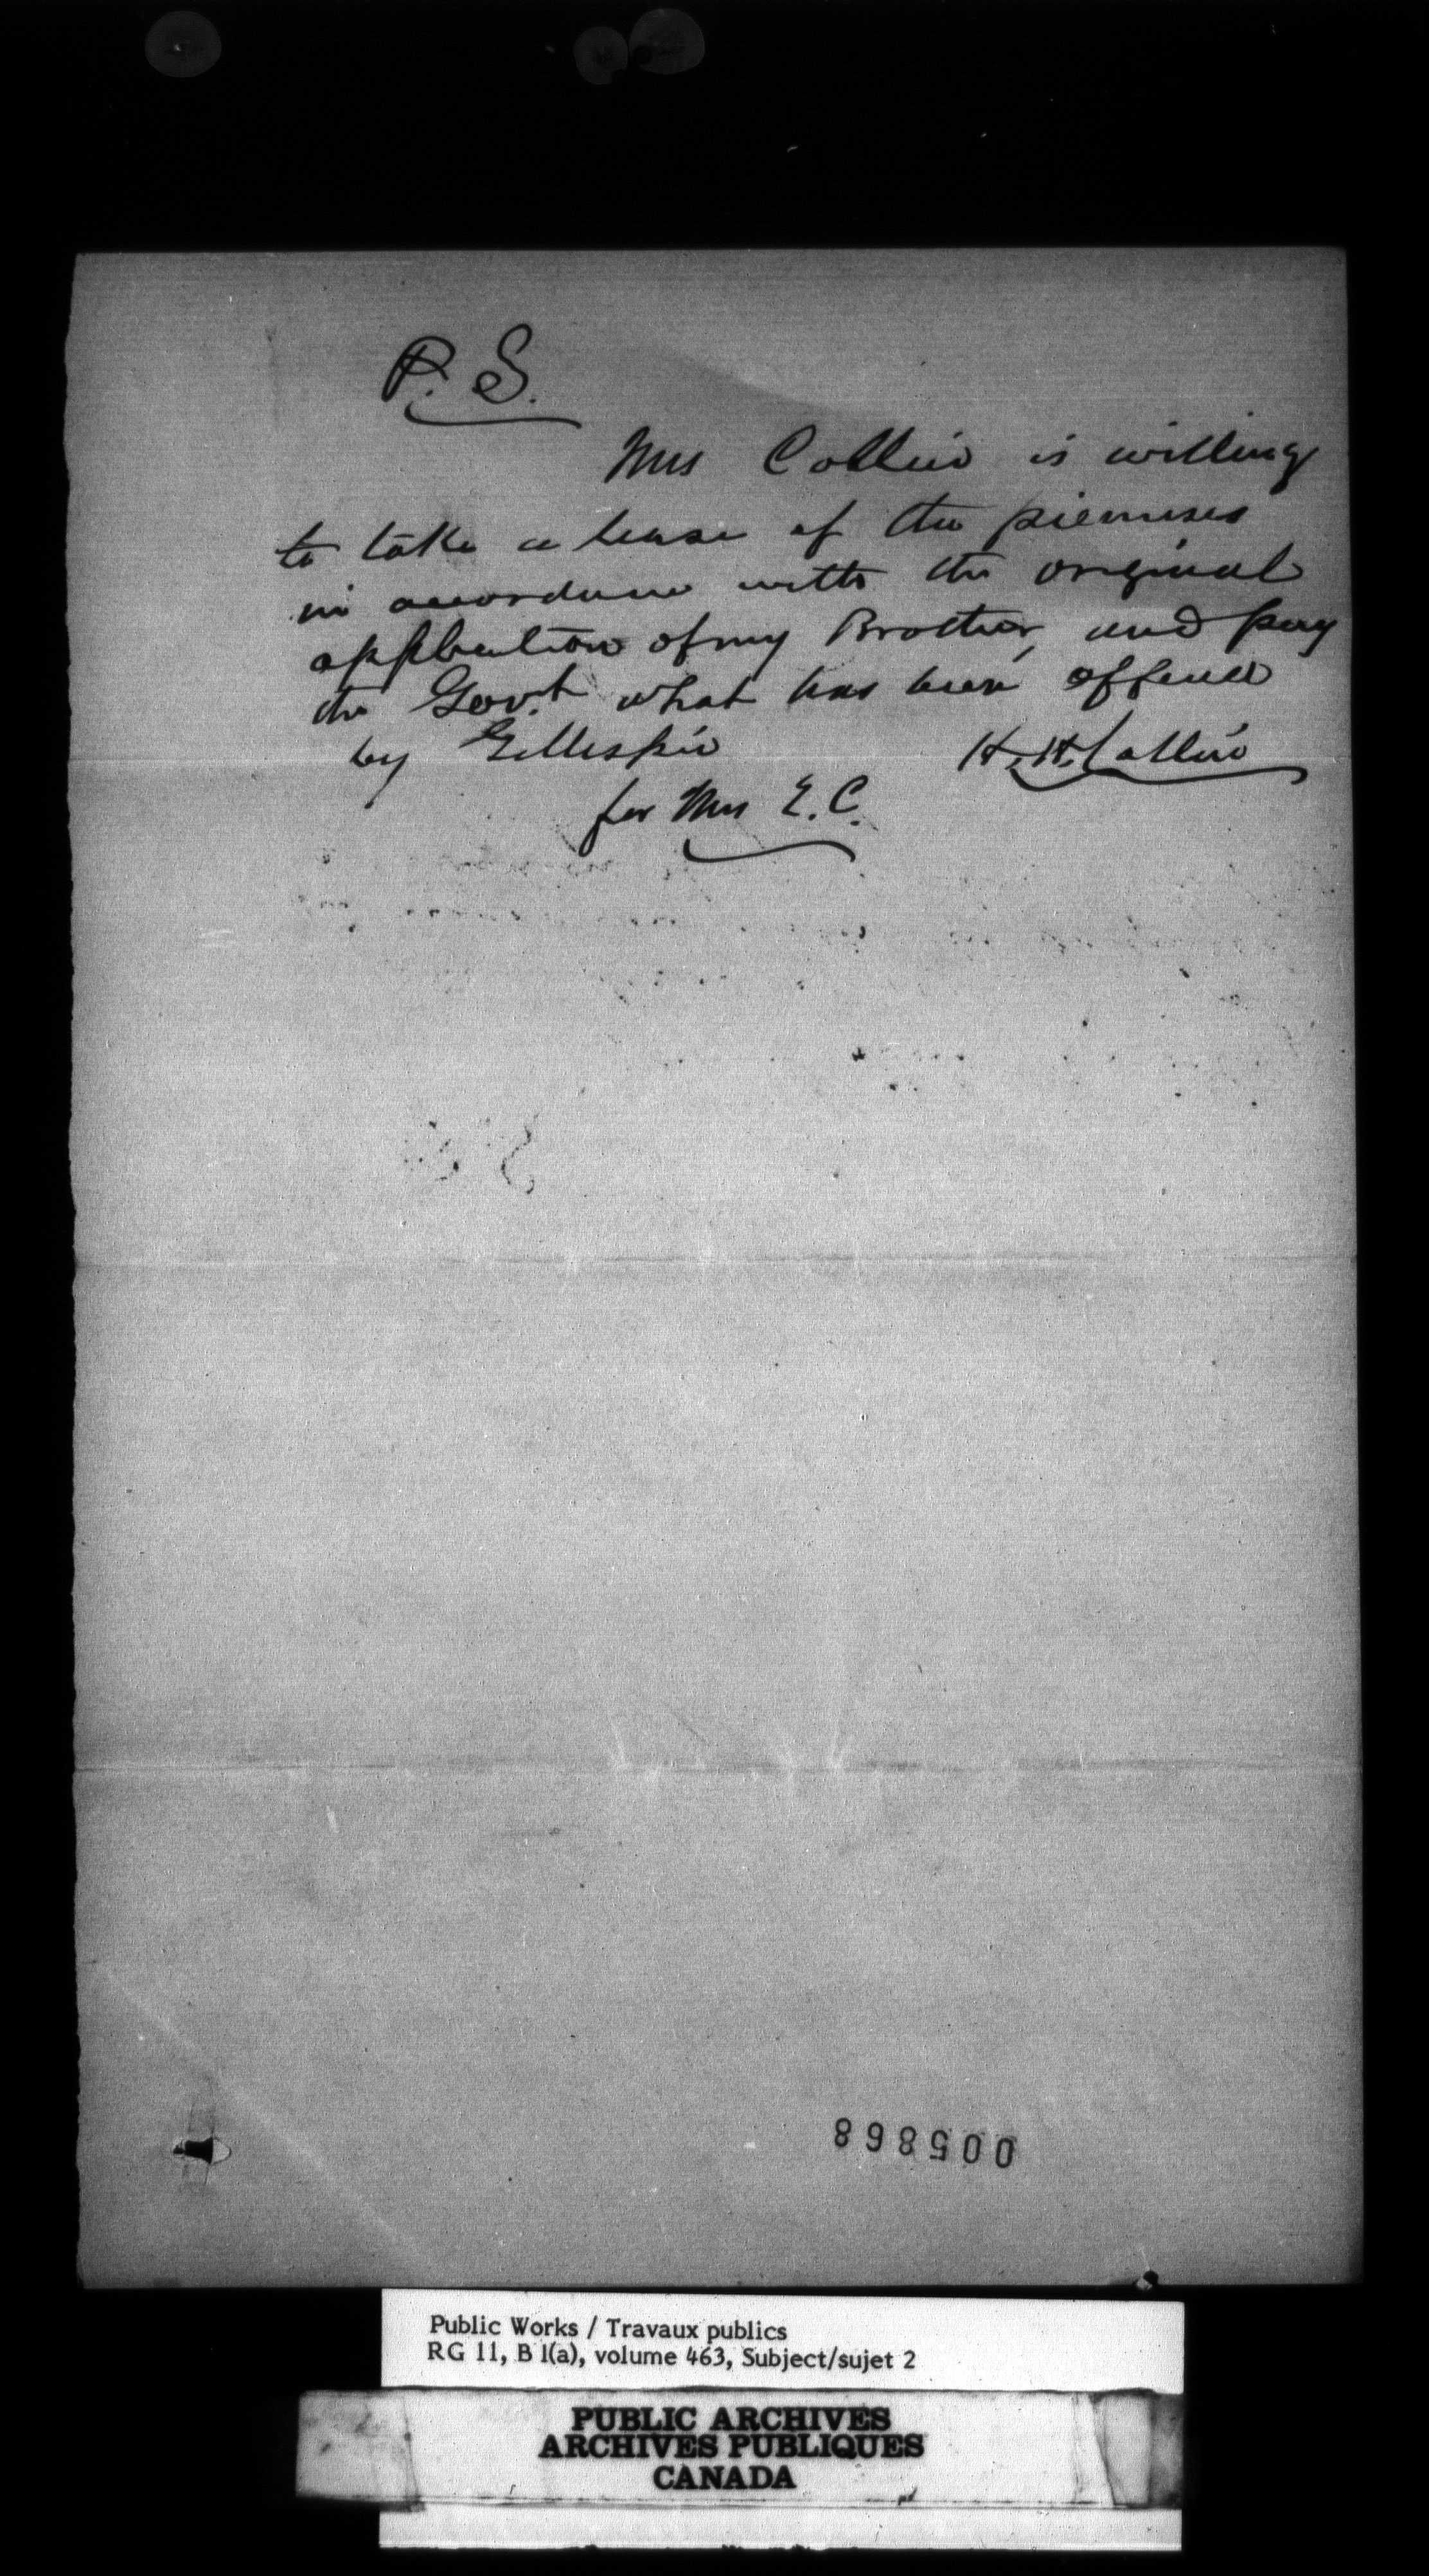 P. S.
Mrs Collier is willing
to take a lease of the premises
in accordance with the original
application of my Brother, and pay
the Gov.t what has been offered
by Gillespie
H. H. Collier
for Mrs E. C.
005868
Public Works / Travaux publics
RG 11, B 1(a), volume 463, Subject/sujet 2
PUBLIC ARCHIVES
ARCHIVES PUBLIQUES
CANADA